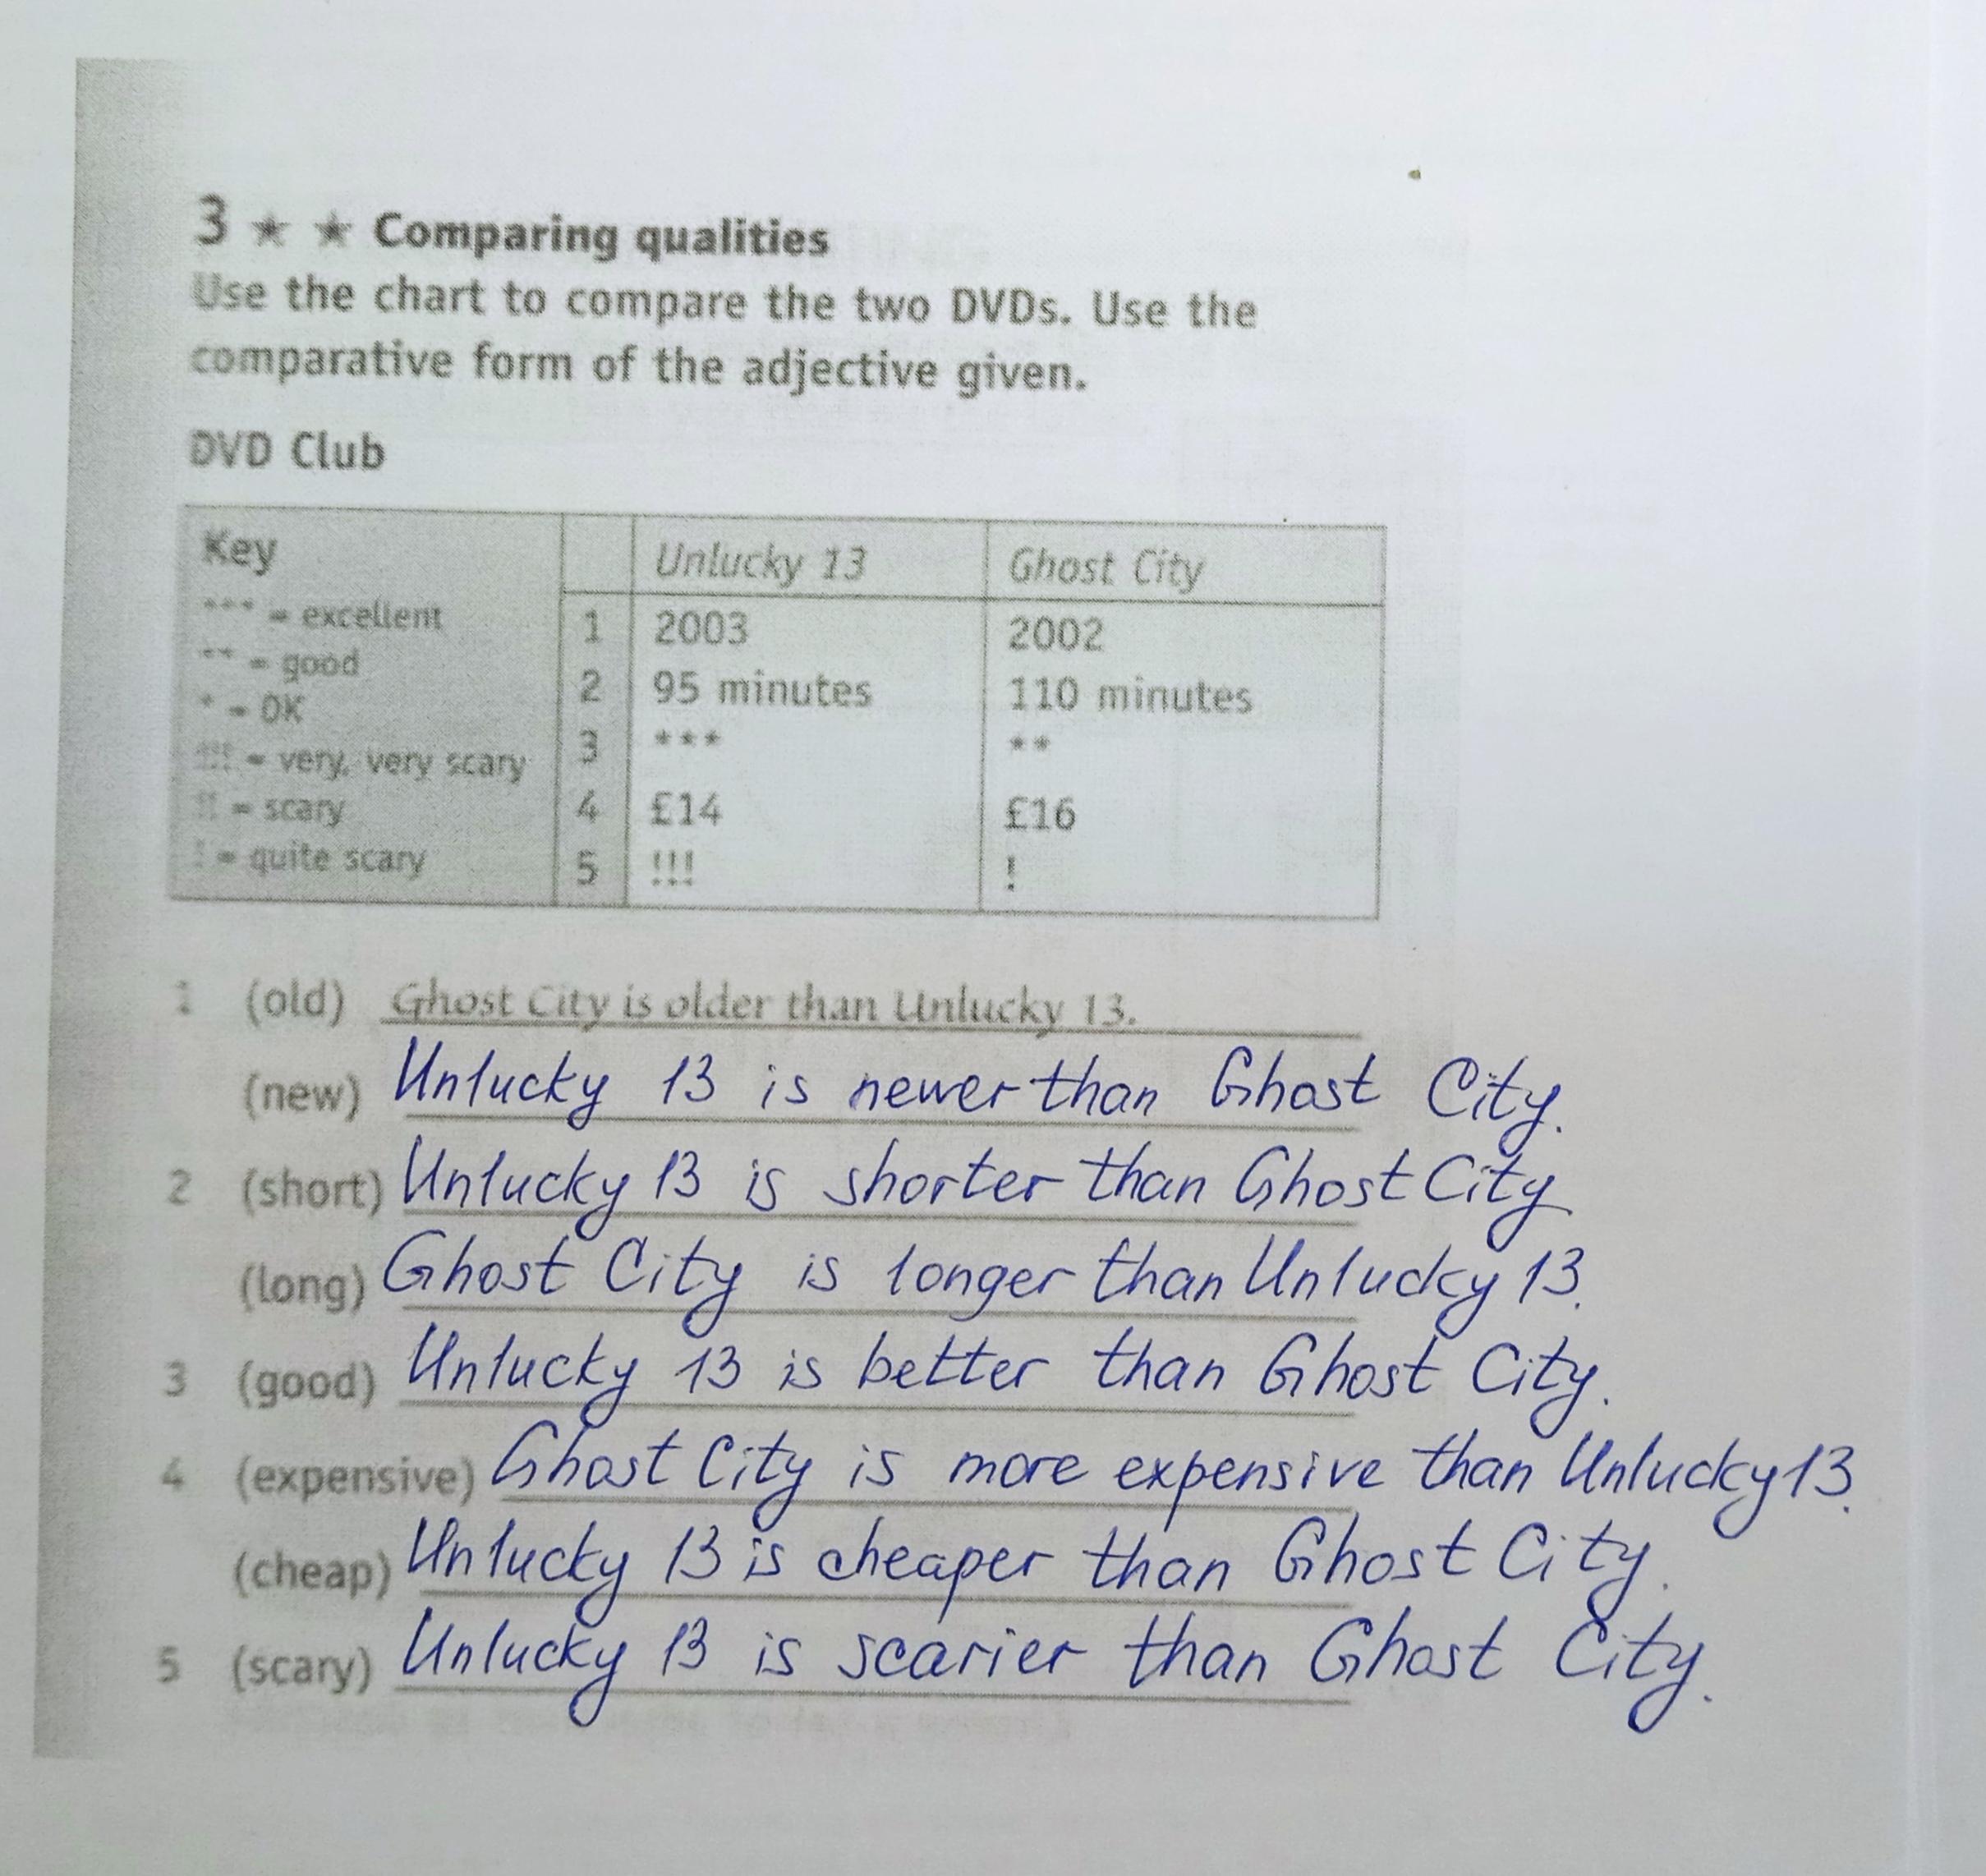 3 ★ ★ Comparing qualities
Use the chart to compare the two DVDs. Use the
comparative form of the adjective given.
DVD Club
Key
*** = excellent
** = good
* = OK
!!! = very, very scary
!! = scary
! = quite scary
Unlucky 13 Ghost City
1 2003 2002
2 95 minutes 110 minutes
3 *** **
4 £14 £16
5 !!! !
1 (old) Ghost City is older than Unlucky 13.
(new) Unlucky 13 is newer than Ghost City.
2 (short) Unlucky 13 is shorter than Ghost City
(long) Ghost City is longer than Unlucky 13.
3 (good) Unlucky 13 is better than Ghost City.
4 (expensive) Ghost City is more expensive than Unlucky 13.
(cheap) Unlucky 13 is cheaper than Ghost City.
5 (scary) Unlucky 13 is scarier than Ghost City.